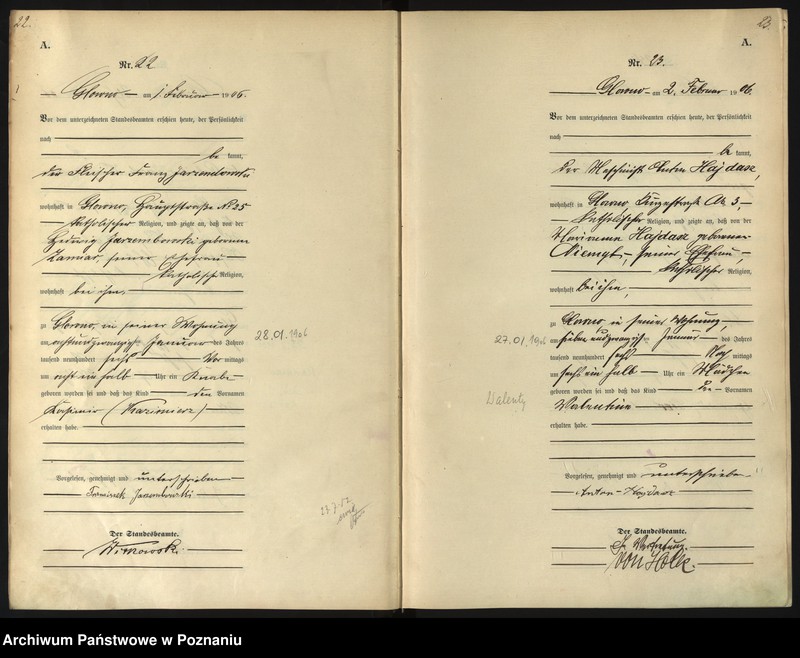 22.
A.
Nr. 22
Glowno am 1. Februar 1906.
Vor dem unterzeichneten Standesbeamten erschien heute, der Persönlichkeit
nach
be kannt,
der Fleischer Franz Jarembowski
wohnhaft in Glowno, Hauptstraße No 25
katholischer Religion, und zeigte an, daß von der
Hedwig Jarembowski geborenen
seiner Ehefrau
katholischer Religion,
wohnhaft bei ihm,
zu Glowno, in seiner Wohnung
am achtundzwanzigsten Januar des Jahres
tausend neunhundert sechs Vor mittags
um acht ein halb Uhr ein Knabe
geboren worden sei und daß das Kind den Vornamen
Kasimir (Kazimierz)
erhalten habe.
Vorgelesen, genehmigt und unterschrieben
Der Standesbeamte.
Witkowski.
28.01.1906
23.
A.
Nr. 23.
Glowno am 2. Februar 1906.
Vor dem unterzeichneten Standesbeamten erschien heute, der Persönlichkeit
nach
be kannt,
der Maschinist Anton Hajdasz,
wohnhaft in Glowno No 3,
katholischer Religion, und zeigte an, daß von der
Marianna Hajdasz geborenen
Niemyt, seiner Ehefrau
katholischer Religion,
wohnhaft bei ihm,
zu Glowno in seiner Wohnung,
am siebenundzwanzigsten Januar des Jahres
tausend neunhundert sechs Nach mittags
um sechs ein halb Uhr ein Mädchen
geboren worden sei und daß das Kind den Vornamen
Valentine
erhalten habe.
Vorgelesen, genehmigt und unterschrieben
Anton Hajdasz
Der Standesbeamte.
In Vertretung.
von Holk.
27.01.1906
Walenty
Archiwum Państwowe w Poznaniu